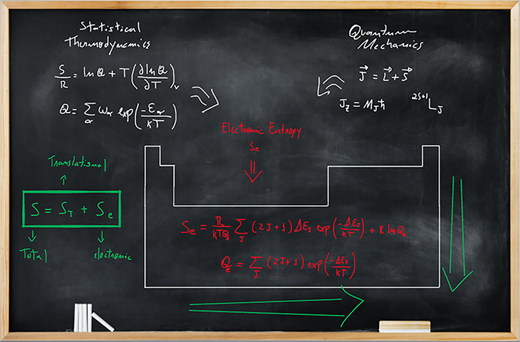 Statistical
Thermodynamics
S/R = ln Q + T (∂ln Q/∂T)_V
Q = Σ_α ω_α exp(-E_α/kT)
Quantum
Mechanics
J⃗ = L⃗ + S⃗
J_z = M_J ħ
^{2S+1}L_J
Electronic Entropy
S_e
Translational
S = S_T + S_e
Total
electronic
S_e = R/(kTQ_e) Σ_J (2J+1) ΔE_J exp(-ΔE_J/kT) + R ln Q_e
Q_e = Σ_J (2J+1) exp(-ΔE_J/kT)